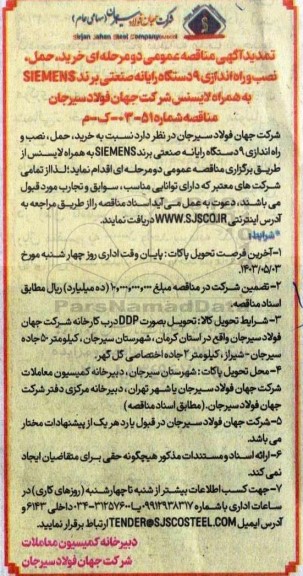 شرکت جهان فولاد سیرجان (سهامی عام)
Sirjan Jahan Steel Company
تمدید آگهی مناقصه عمومی دو مرحله ای خرید، حمل،
نصب و راه اندازی ۹ دستگاه رایانه صنعتی برند SIEMENS
به همراه لایسنس شرکت جهان فولاد سیرجان
مناقصه شماره ۵۱-۰۳-ک-م
شرکت جهان فولاد سیرجان در نظر دارد نسبت به خرید، حمل، نصب و
راه اندازی ۹ دستگاه رایانه صنعتی برند SIEMENS به همراه لایسنس از
طریق برگزاری مناقصه عمومی دو مرحله ای اقدام نماید؛ لذا از تمامی
شرکت های معتبر که دارای توانایی مناسب، سوابق و تجارب مورد قبول
می باشند، دعوت به عمل می آید اسناد مناقصه را از طریق مراجعه به
آدرس اینترنتی WWW.SJSCO.IR دریافت نمایند.
*شرایط:
۱-آخرین فرصت تحویل پاکات: پایان وقت اداری روز چهار شنبه مورخ
۱۴۰۳/۰۵/۰۳
۲-تضمین شرکت در مناقصه مبلغ ۱۰,۰۰۰,۰۰۰,۰۰۰ (ده میلیارد) ریال مطابق
اسناد مناقصه.
۳-شرایط تحویل کالا: تحویل بصورت DDP درب کارخانه شرکت جهان
فولاد سیرجان واقع در استان کرمان، شهرستان سیرجان، کیلومتر ۵۰ جاده
سیرجان-شیراز، کیلومتر ۲ جاده اختصاصی گل گهر.
۴-محل تحویل پاکات: شهرستان سیرجان، دبیرخانه کمیسیون معاملات
شرکت جهان فولاد سیرجان یا شهر تهران، دبیرخانه مرکزی دفتر شرکت
جهان فولاد سیرجان. (مطابق اسناد مناقصه)
۵-شرکت جهان فولاد سیرجان در قبول یا رد هر یک از پیشنهادات مختار
می باشد.
۶-ارائه اسناد و مستندات مذکور هیچگونه حقی برای متقاضیان ایجاد
نمی کند.
۷-جهت کسب اطلاعات بیشتر از شنبه تا چهارشنبه (روزهای کاری) در
ساعات اداری با شماره ۰۹۹۱۲۹۳۸۳۱۷ یا ۰۳۴-۳۱۲۵۷۶۰۰ داخلی ۶۱۴۳ و
آدرس ایمیل TENDER@SJSCOSTEEL.COM ارتباط برقرار نمایید.
دبیرخانه کمیسیون معاملات
شرکت جهان فولاد سیرجان